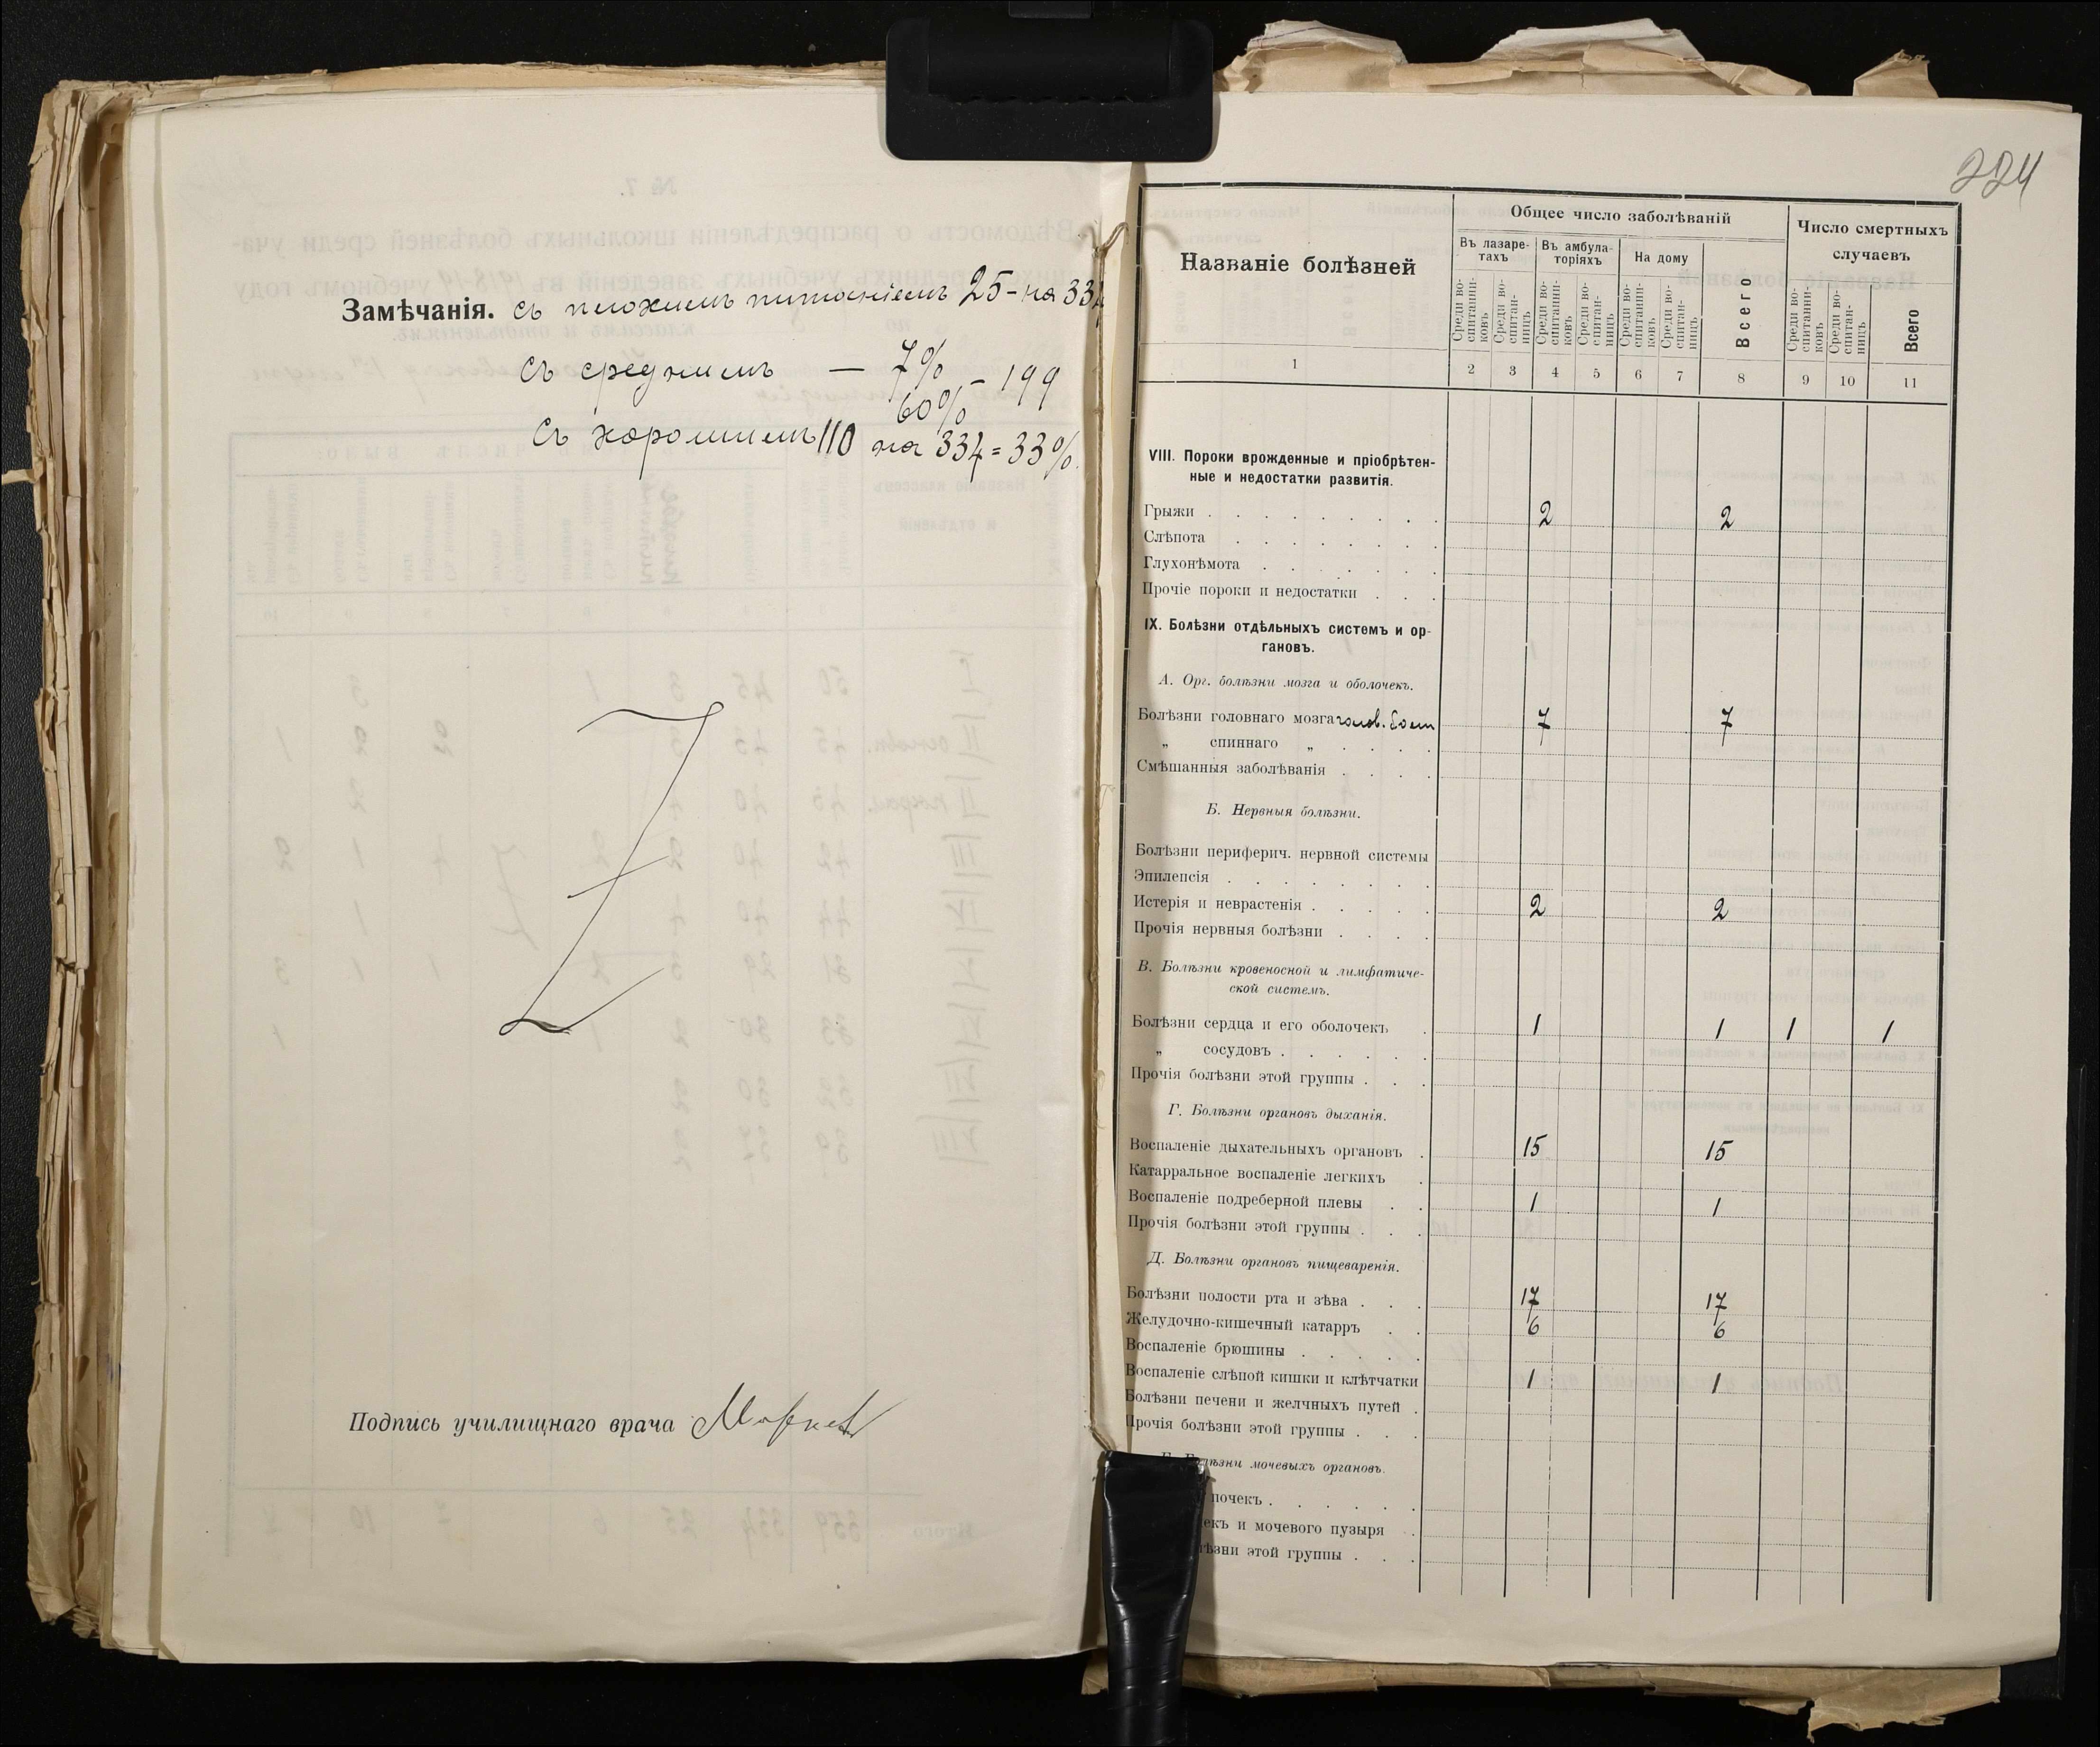 Замѣчанія. съ плохимъ питаніемъ 25 - на 334
съ среднимъ — 7%
60% - 199
съ хорошимъ 110 на 334 = 33%.
Подпись училищнаго врача
224
Названіе болѣзней
Общее число заболѣваній
Число смертныхъ
случаевъ
Въ лазаре-
тахъ
Въ амбула-
торіяхъ
На дому
Среди во-
спитанни-
ковъ
Среди во-
спитан-
ницъ
Среди во-
спитанни-
ковъ
Среди во-
спитан-
ницъ
Среди во-
спитанни-
ковъ
Среди во-
спитан-
ницъ
Всего
Среди во-
спитанни-
ковъ
Среди во-
спитан-
ницъ
Всего
1 2 3 4 5 6 7 8 9 10 11
VIII. Пороки врожденные и пріобрѣтен-
ные и недостатки развитія.
Грыжи . . . . . . . . . 2 2
Слѣпота . . . . . . . .
Глухонѣмота . . . . . . .
Прочіе пороки и недостатки . . .
IX. Болѣзни отдѣльныхъ системъ и ор-
гановъ.
А. Орг. болѣзни мозга и оболочекъ.
Болѣзни головнаго мозга голов. боли 7 7
„ спиннаго „ . . . .
Смѣшанныя заболѣванія . . . .
Б. Нервныя болѣзни.
Болѣзни периферич. нервной системы
Эпилепсія . . . . . . . .
Истерія и неврастенія . . . . . 2 2
Прочія нервныя болѣзни . . . .
В. Болѣзни кровеносной и лимфатиче-
ской системъ.
Болѣзни сердца и его оболочекъ . 1 1 1 1
„ сосудовъ . . . . . .
Прочія болѣзни этой группы . . .
Г. Болѣзни органовъ дыханія.
Воспаленіе дыхательныхъ органовъ . 15 15
Катарральное воспаленіе легкихъ .
Воспаленіе подреберной плевы . . 1 1
Прочія болѣзни этой группы . . .
Д. Болѣзни органовъ пищеваренія.
Болѣзни полости рта и зѣва . . . 17 17
Желудочно-кишечный катарръ . . 6 6
Воспаленіе брюшины . . . . .
Воспаленіе слѣпой кишки и клѣтчатки 1 1
Болѣзни печени и желчныхъ путей .
Прочія болѣзни этой группы . . .
Болѣзни мочевыхъ органовъ.
почекъ . . . . . .
екъ и мочевого пузыря .
ѣзни этой группы . . .